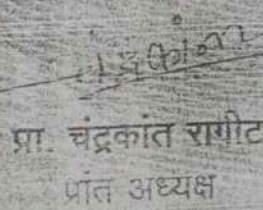 प्रा. चंद्रकांत रागीट
प्रांत अध्यक्ष